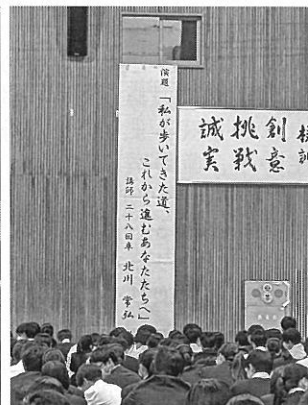 演題 「私が歩いてきた道、
これから進むあなたたちへ」
講師 二十八回卒 北川 常弘
創意
挑戦
誠実